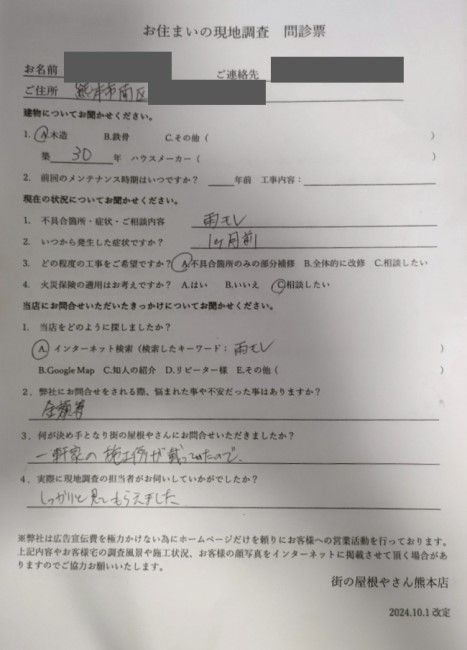 お住まいの現地調査　問診票
お名前　ご連絡先
ご住所　熊本市南区
建物についてお聞かせください。
1. A.木造　B.鉄骨　C.その他（　）
築 30 年　ハウスメーカー（　）
2. 前回のメンテナンス時期はいつですか？　年前　工事内容：
現在の状況についてお聞かせください。
1. 不具合箇所・症状・ご相談内容　雨モレ
2. いつから発生した症状ですか？　1ヶ月前
3. どの程度の工事をご希望ですか？ A.不具合箇所のみの部分補修　B.全体的に改修　C.相談したい
4. 火災保険の適用はお考えですか？ A.はい　B.いいえ　C.相談したい
当店にお問合せいただいたきっかけについてお聞かせください。
1. 当店をどのように探しましたか？
A. インターネット検索（検索したキーワード：雨モレ　）
B.Google Map　C.知人の紹介　D.リピーター様　E.その他（　）
2. 弊社にお問合せをされる際、悩まれた事や不安だった事はありますか？
金額等
3. 何が決め手となり街の屋根やさんにお問合せいただきましたか？
一軒家の施工例が載っていたので、
4. 実際に現地調査の担当者がお伺いしていかがでしたか？
しっかりと見てもらえました
※弊社は広告宣伝費を極力かけない為にホームページだけを頼りにお客様への営業活動を行っております。
上記内容やお客様宅の調査風景や施工状況、お客様の顔写真をインターネットに掲載させて頂く場合があ
りますのでご協力お願いいたします。
街の屋根やさん熊本店
2024.10.1 改定